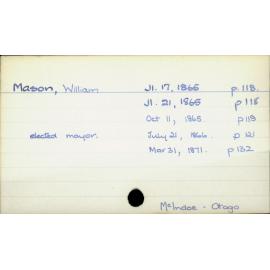 Mason, William Jl. 17, 1865 p. 118.
Jl. 21, 1865 p 118
Oct 11, 1865. p 119
elected mayor. July 21, 1866. p 121
Mar 31, 1871. p 132
McIndoe - Otago